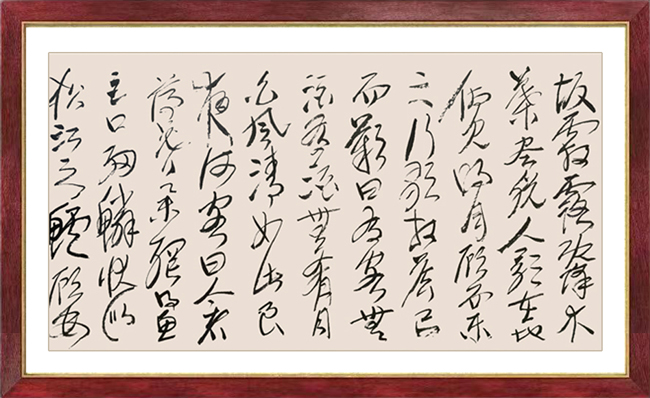 坂霜露既降木
葉盡脱人影在地
仰見明月顧而樂
之行歌相答已
而歎曰有客無
酒有酒無肴月
白風清如此良
夜何客曰今者
薄暮舉網得魚
巨口細鱗狀似
松江之鱸顧安